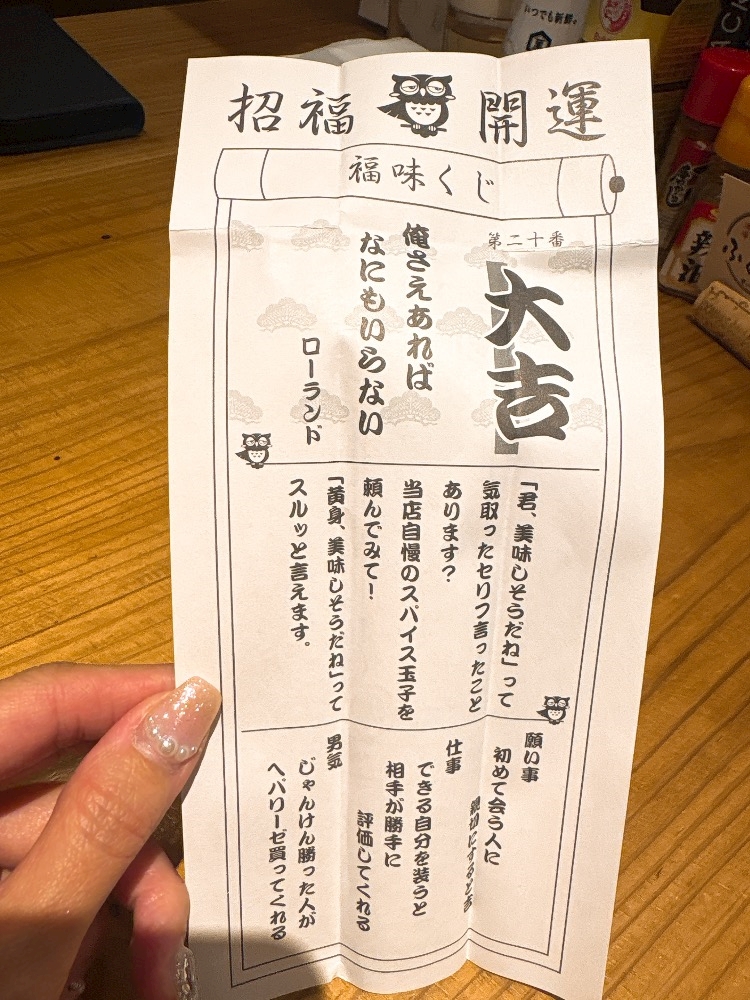 いつでも新鮮。
招福 開運
福味くじ
第二十番
大吉
俺さえあれば
なにもいらない
ローランド
「君、美味しそうだね」って
気取ったセリフ言ったこと
あります？
当店自慢のスパイス玉子を
頼んでみて！
「黄身、美味しそうだね」って
スルッと言えます。
願い事
初めて会う人に
親切にすると吉
仕事
できる自分を装うと
相手が勝手に
評価してくれる
男気
じゃんけん勝った人が
ヘパリーゼ買ってくれる